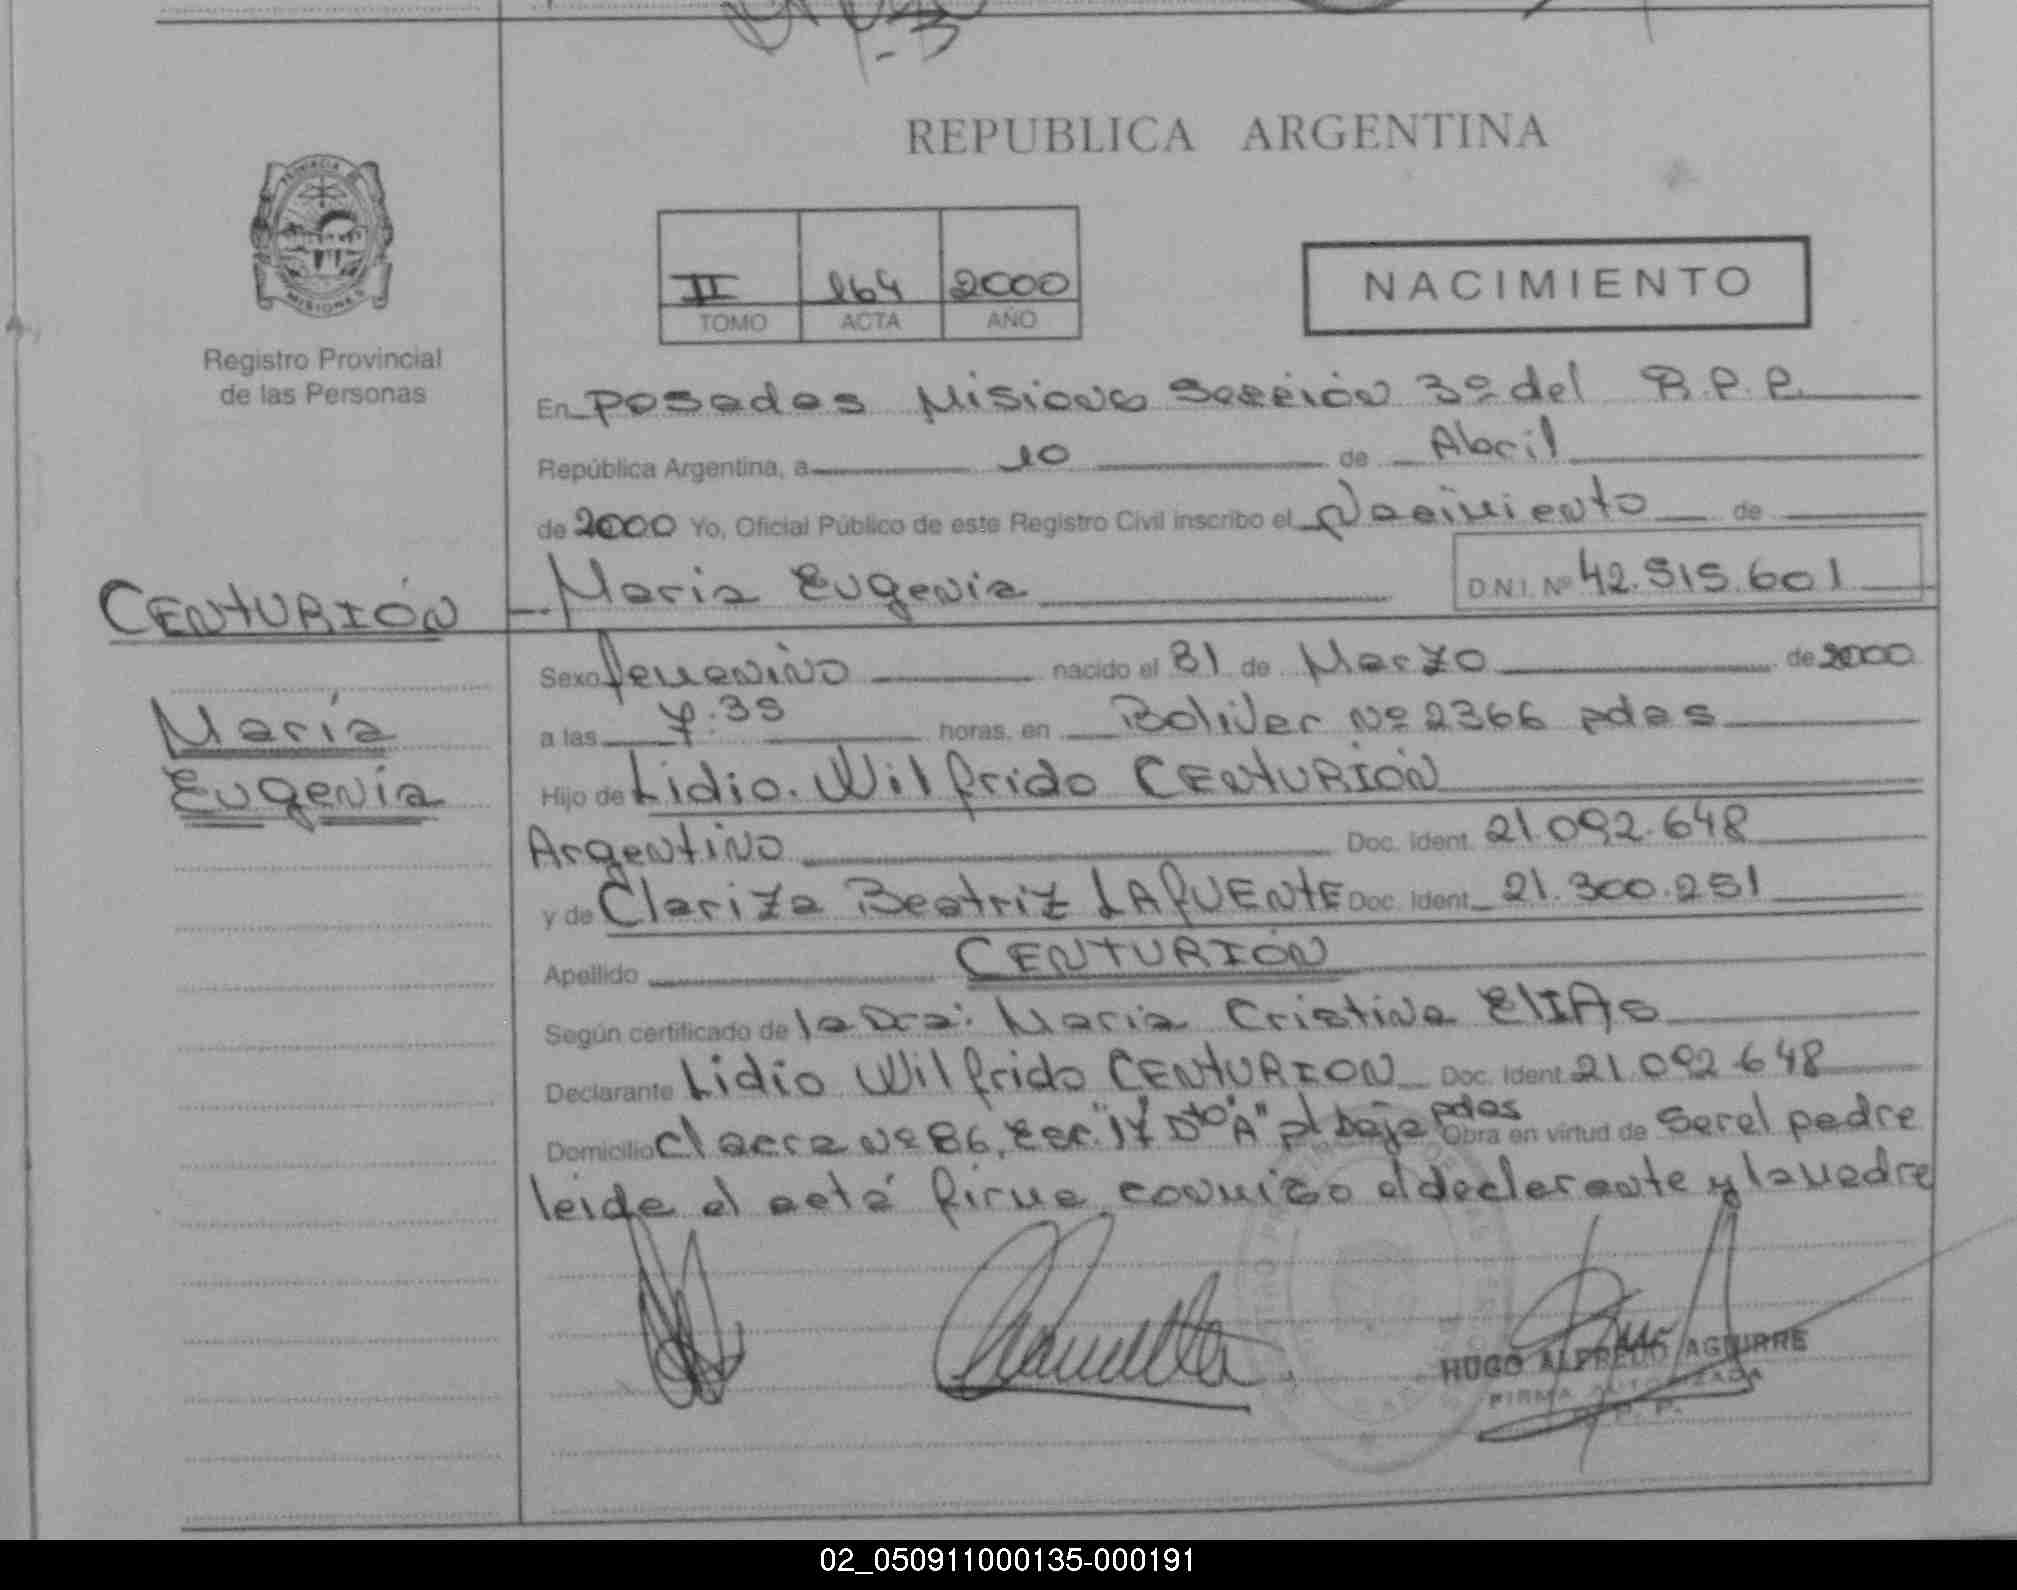 REPUBLICA ARGENTINA
PROVINCIA DE
MISIONES
Registro Provincial
de las Personas
II 164 2000
TOMO ACTA AÑO
NACIMIENTO
En Posadas Misiones Sección 3º del R.P.P.
República Argentina, a 10 de Abril
de 2000 Yo, Oficial Público de este Registro Civil inscribo el Nacimiento de
María Eugenia D.N.I. Nº 42.515.601
CENTURIÓN
María
Eugenia
Sexo femenino nacido el 31 de Marzo de 2000
a las 7.35 horas, en Boliver Nº 2366 pdas
Hijo de Lidio. Wilfrido CENTURIÓN
Argentino Doc. Ident. 21.092.648
y de Clariza Beatriz LAFUENTE Doc. Ident. 21.300.251
Apellido CENTURIÓN
Según certificado de la Dra: María Cristina ELIAS
Declarante Lidio Wilfrido CENTURION Doc. Ident. 21.092.648
Domicilio Chacra Nº 86, Esc. "17" Dto "A" pl baja pdas Obra en virtud de Ser el padre
leída el acta firma conmigo el declarante y la madre
HUGO ALFREDO AGUIRRE
FIRMA AUTORIZADA
R. P. P.
02_050911000135-000191